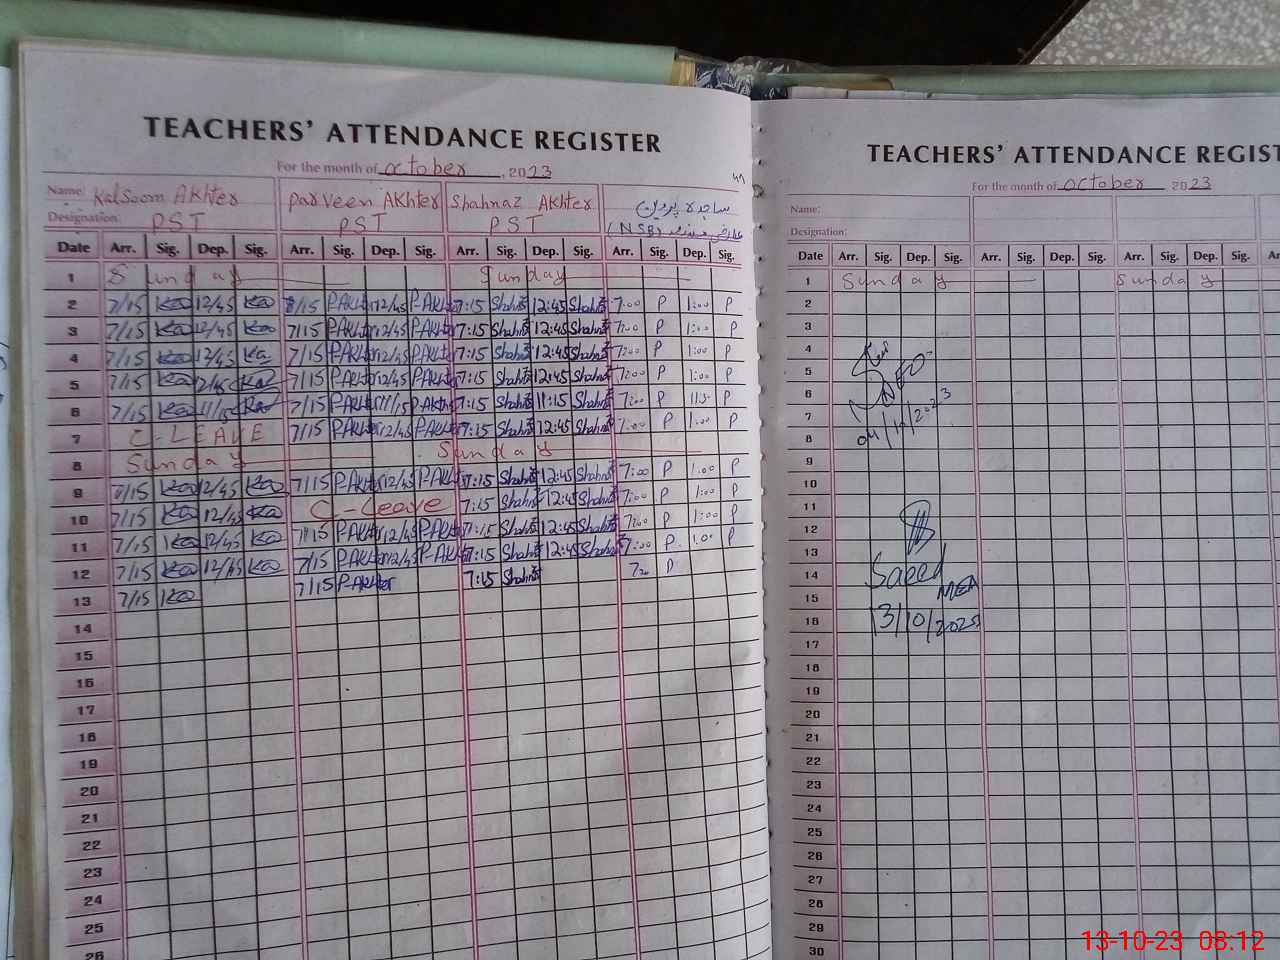 TEACHERS' ATTENDANCE REGISTER
For the month of October, 2023
Name: Kalsoom Akhter Parveen Akhter Shahnaz Akhter ساجدہ پروین
Designation: PST PST PST (NSB)
Date Arr. Sig. Dep. Sig. Arr. Sig. Dep. Sig. Arr. Sig. Dep. Sig. Arr. Sig. Dep. Sig.
1 Sunday Sunday
2 7/15 Ka 12/45 Ka 7/15 P-Akhter 12/45 P-Akhter 7:15 Shahnaz 12:45 Shahnaz 7:00 P 1:00 P
3 7/15 Ka 12/45 Ka 7/15 P-Akhter 12/45 P-Akhter 7:15 Shahnaz 12:45 Shahnaz 7:00 P 1:00 P
4 7/15 Ka 12/45 Ka 7/15 P-Akhter 12/45 P-Akhter 7:15 Shahnaz 12:45 Shahnaz 7:00 P 1:00 P
5 7/15 Ka 12/45 Ka 7/15 P-Akhter 12/45 P-Akhter 7:15 Shahnaz 12:45 Shahnaz 7:00 P 1:00 P
6 7/15 Ka 11/15 Ka 7/15 P-Akhter 11/15 P-Akhter 7:15 Shahnaz 11:15 Shahnaz 7:00 P P
7 C-LEAVE 7/15 P-Akhter 12/45 P-Akhter 7:15 Shahnaz 12:45 Shahnaz 7:00 P 1:00 P
8 Sunday Sunday
9 7/15 Ka 12/45 Ka 7/15 P-Akhter 12/45 P-Akhter 7:15 Shahnaz 12:45 Shahnaz 7:00 P 1:00 P
10 7/15 Ka 12/45 Ka C-Leave 7:15 Shahnaz 12:45 Shahnaz 7:00 P 1:00 P
11 7/15 Ka 12/45 Ka 7/15 P-Akhter 12/45 P-Akhter 7:15 Shahnaz 12:45 Shahnaz 7:00 P 1:00 P
12 7/15 Ka 12/45 Ka 7/15 P-Akhter 12/45 P-Akhter 7:15 Shahnaz 12:45 Shahnaz 7:00 P 1:00 P
13 7/15 Ka 7/15 P-Akhter 7:15 Shahnaz 7:00 P
14
15
16
17
18
19
20
21
22
23
24
25
26
TEACHERS' ATTENDANCE REGIST
For the month of October 2023
Name:
Designation:
Date Arr. Sig. Dep. Sig. Arr. Sig. Dep. Sig. Arr. Sig. Dep. Sig. Arr.
1 Sunday Sunday
2
3
4
5
6
7
04/10/2023
8
9
10
11
12
13
14 Saeed
15 MEA
16 13/10/2023
17
18
19
20
21
22
23
24
25
26
27
28
29
30
13-10-23 08:12